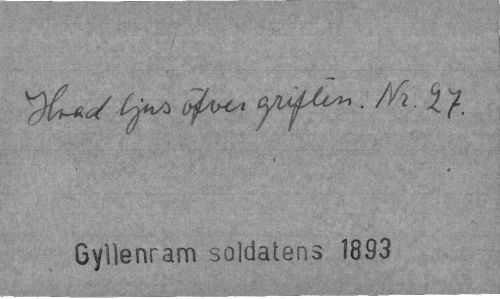 Hvad ljus öfver griften. Nr. 27.
Gyllenram soldatens 1893